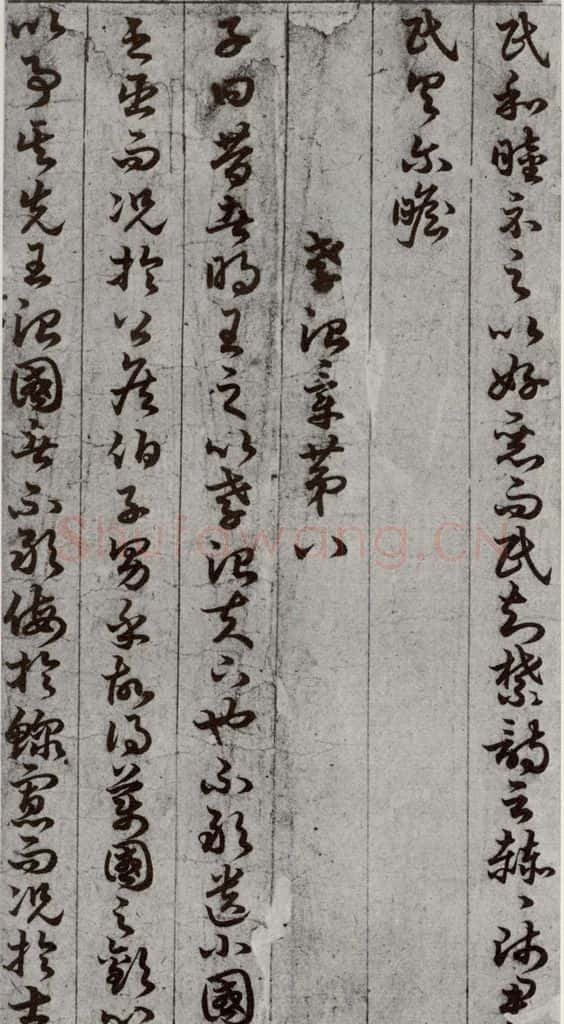 民和睦示之以好惡而民知禁詩云赫〻師尹
民具尔瞻
孝治章第八
子曰昔者明王之以孝治天下也不敢遺小國
之臣而况於公侯伯子男乎故得萬國之歡心以
事其先王治國者不敢侮於鰥寡而况於士
Shufawang.CN